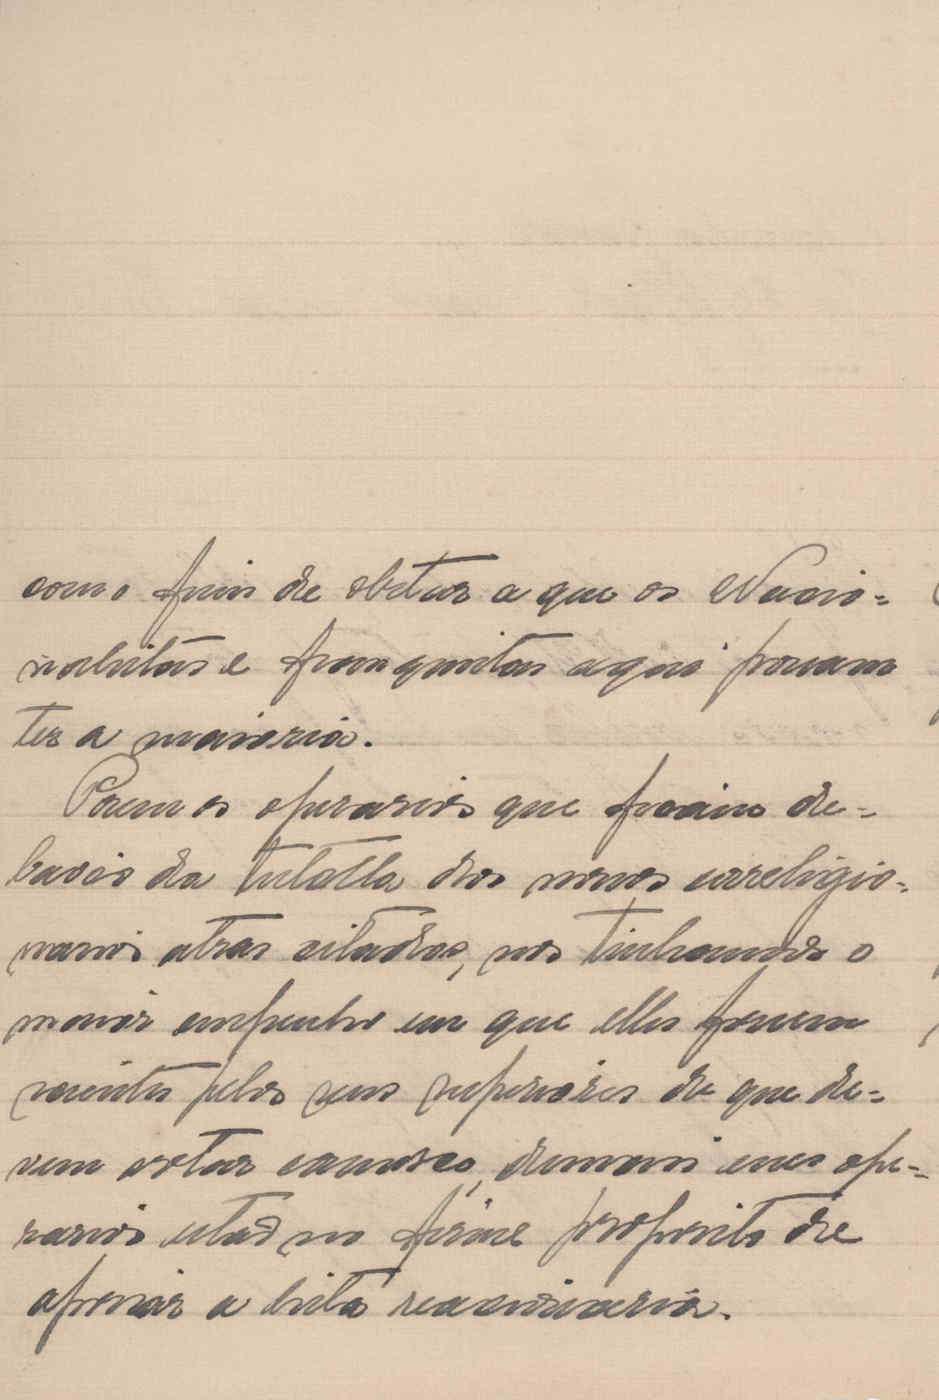 como fim de obstar a que os Nacio-
nalistas e franquistas aqui possam
ter a maioria.
Como os operarios que ficam de-
baixo da tutella dos nossos correligio-
narios atras citados, nós tinhamos o
maior empenho em que elles fossem
scientes pelos seus superiores de que de-
vem votar comnosco, demais esses ope-
rarios estão no firme proposito de
apoiar a lista reacionaria.